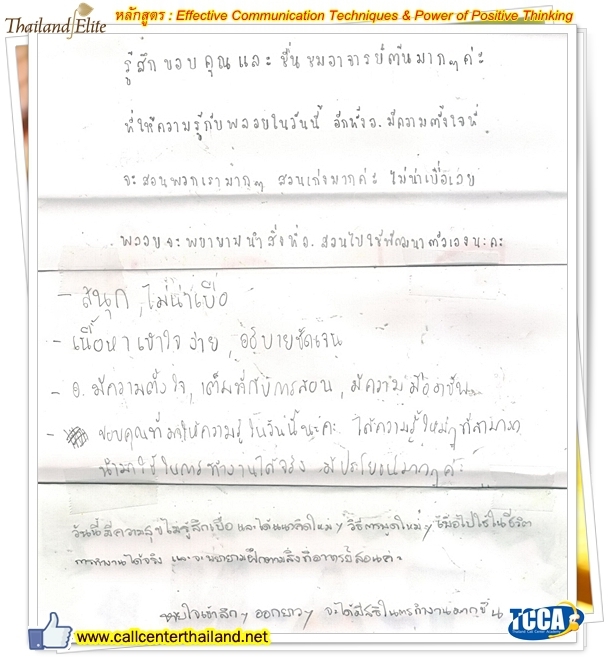 Thailand Elite
หลักสูตร : Effective Communication Techniques & Power of Positive Thinking
รู้สึกขอบคุณและชื่นชมอาจารย์ต้นมากๆค่ะ
ที่ให้ความรู้กับพลอยในวันนี้ อีกทั้งอ. มีความตั้งใจที่
จะสอนพวกเรามากๆ สอนเก่งมากค่ะ ไม่น่าเบื่อเลย
พลอยจะพยายามนำสิ่งที่อ. สอนไปใช้พัฒนาตัวเองนะคะ
- สนุก, ไม่น่าเบื่อ
- เนื้อหาเข้าใจง่าย, อธิบายชัดเจน
- อ. มีความตั้งใจ, เต็มที่กับการสอน, มีความมืออาชีพ
- ขอบคุณที่มาให้ความรู้ในวันนี้นะคะ ได้ความรู้ใหม่ๆที่สามารถ
นำมาใช้ในการทำงานได้จริง มีประโยชน์มากๆค่ะ
วันนี้มีความสุขไม่รู้สึกเบื่อ และได้แนวคิดใหม่ๆ วิธีการพูดใหม่ๆ ไปใช้ในชีวิต
การทำงานได้จริง และจะพยายามฝึกตามสิ่งที่อาจารย์สอนค่ะ
หายใจเข้าลึกๆ ออกยาวๆ จะได้มีสติในการทำงานมากขึ้น
www.callcenterthailand.net
TCCA
Thailand Call Center Academy